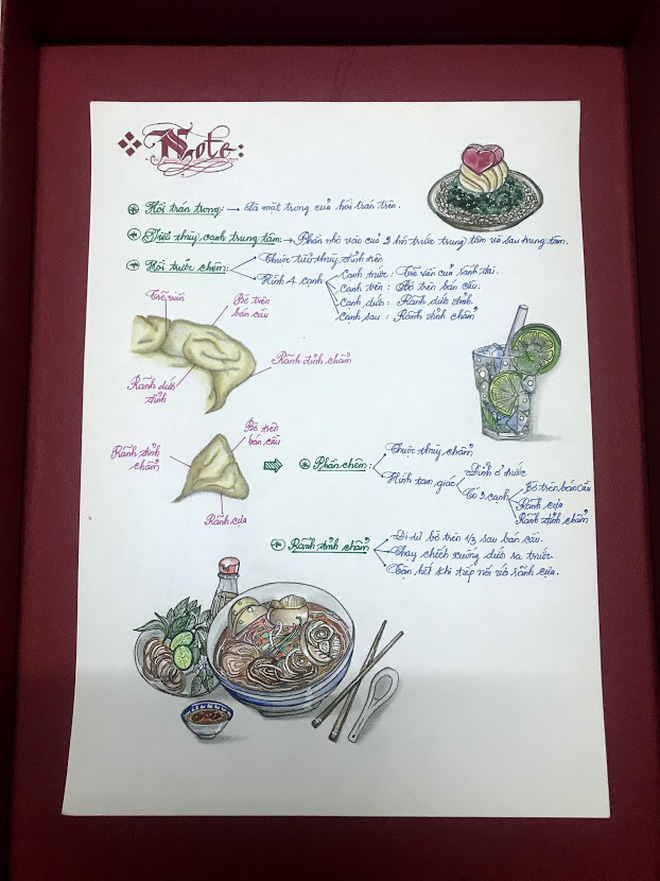 Note:
Hồi trán trong: → Là mặt trong của hồi trán trên.
Tiểu thùy cạnh trung tâm: → Phần nhỏ vào của 2 hồi trước trung tâm và sau trung tâm.
Hồi trước chêm:
Thuộc tiểu thùy đỉnh trên
Hình 4 cạnh
Cạnh trước: Trẽ viền của rãnh đai.
Cạnh trên: Bờ trên bán cầu.
Cạnh dưới: Rãnh dưới đỉnh.
Cạnh sau: Rãnh đỉnh chẩm
Trẽ viền
Bờ trên
bán cầu
Rãnh đỉnh chẩm
Rãnh dưới
đỉnh
Bờ trên
bán cầu
Rãnh đỉnh
chẩm
Rãnh cựa
Phần chêm:
Thuộc thùy chẩm
Hình tam giác
Đỉnh ở trước
Có 3 cạnh
Bờ trên bán cầu
Rãnh cựa
Rãnh đỉnh chẩm
Rãnh đỉnh chẩm:
Đi từ bờ trên 1/3 sau bán cầu.
Chạy chếch xuống dưới ra trước.
Tận hết khi tiếp nối với rãnh cựa.